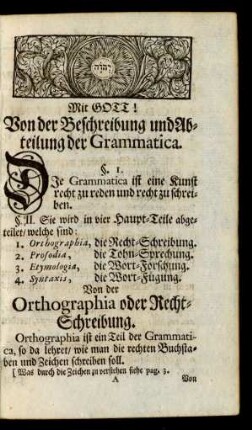 Mit GOTT!
Von der Beschreibung und Ab-
teilung der Grammatica.
§. I.
DJe Grammatica ist eine Kunst
recht zu reden und recht zu schrei-
ben.
§. II. Sie wird in vier Haupt-Teile abge-
teilet/ welche sind:
1. Orthographia, die Recht-Schreibung.
2. Prosodia, die Tohn-Sprechung.
3. Etymologia, die Wort-Forschung.
4. Syntaxis, die Wort-Fügung.
Von der
Orthographia oder Recht-
Schreibung.
Orthographia ist ein Teil der Grammati-
ca, so da lehret/ wie man die rechten Buchsta-
ben und Zeichen schreiben soll.
[ Was durch die Zeichen zu verstehen siehe pag. 3.
A Von